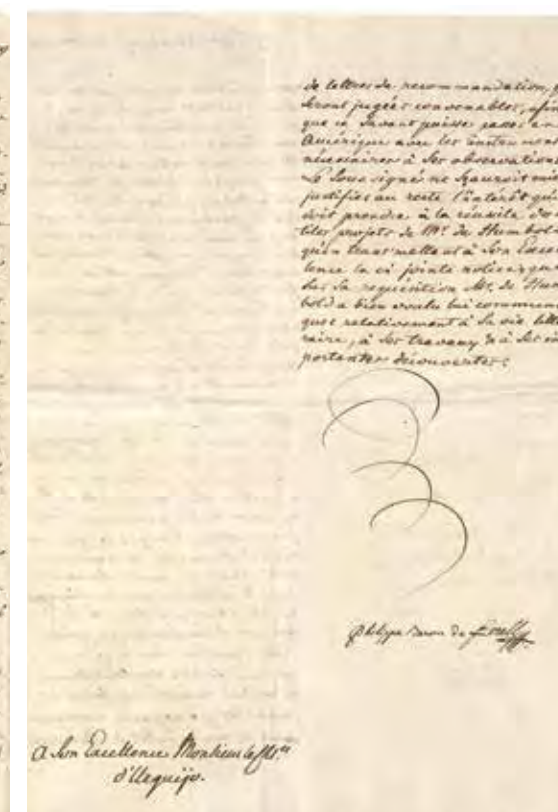 de lettres de recommandation, q
seront jugées convenables, afin
que ce Savant puisse passer en
Amérique avec les instrumens
nécessaires à Ses observations
Le Sous signé ne Sauroit mi
justifier au reste l'intérêt qu
doit prendre à la réussite d'u
tiles projets de Mr. de Humbold
qu'en transmettant à Son Excel
lence la ci jointe notice, que
Sur Sa requisition Mr. de Hum
bold a bien voulu lui communi
quer relativement à Sa vie litté
raire, à Ses travaux & à Ses im
portantes découvertes.
Philippe Baron de
A Son Excellence Monsieur le
d'Urquijo.